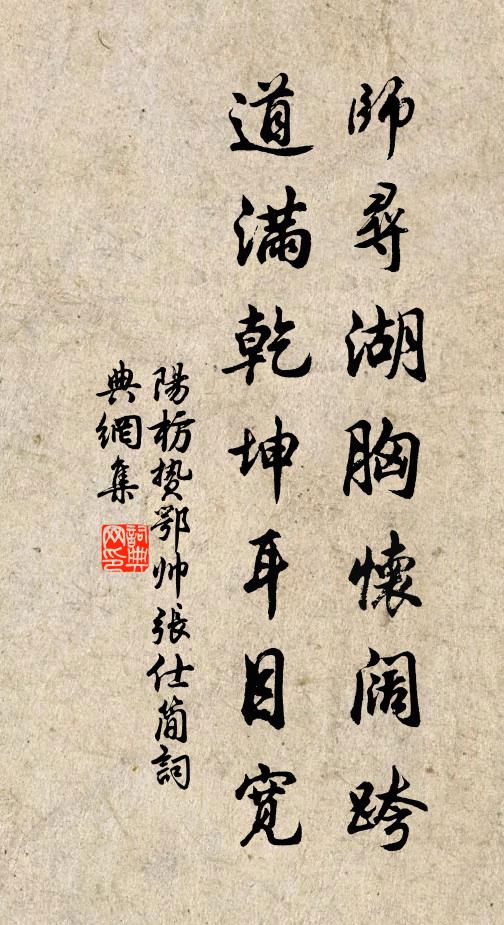 師尋湖胸懷闊跨
道滿乾坤耳目寬
陽枋贄鄂帅張仕簡詞
典網集
詞典网印